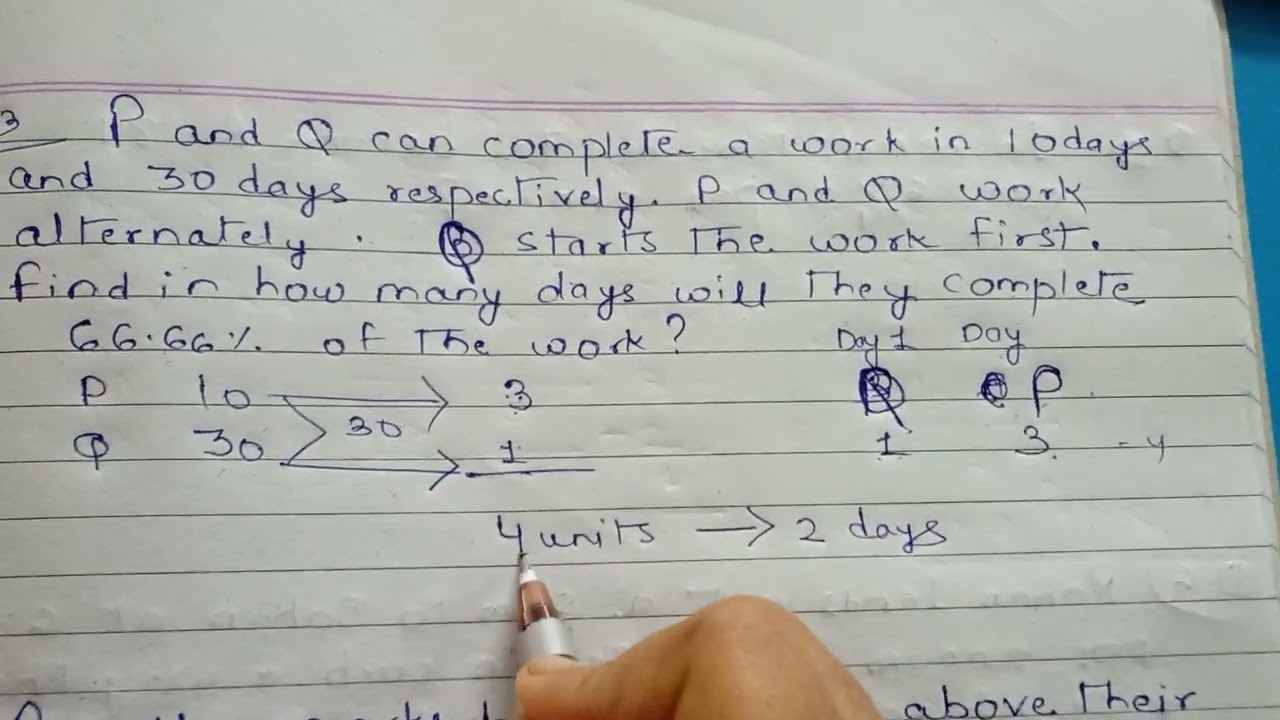 3 P and Q can complete a work in 10days
and 30 days respectively. P and Q work
alternately. Q starts The work first.
Find in how many days will They complete
66.66% of The work?
Day 1 Day
P 10 30 3 Q P
Q 30 1 1 3 = 4
4 units → 2 days
above Their